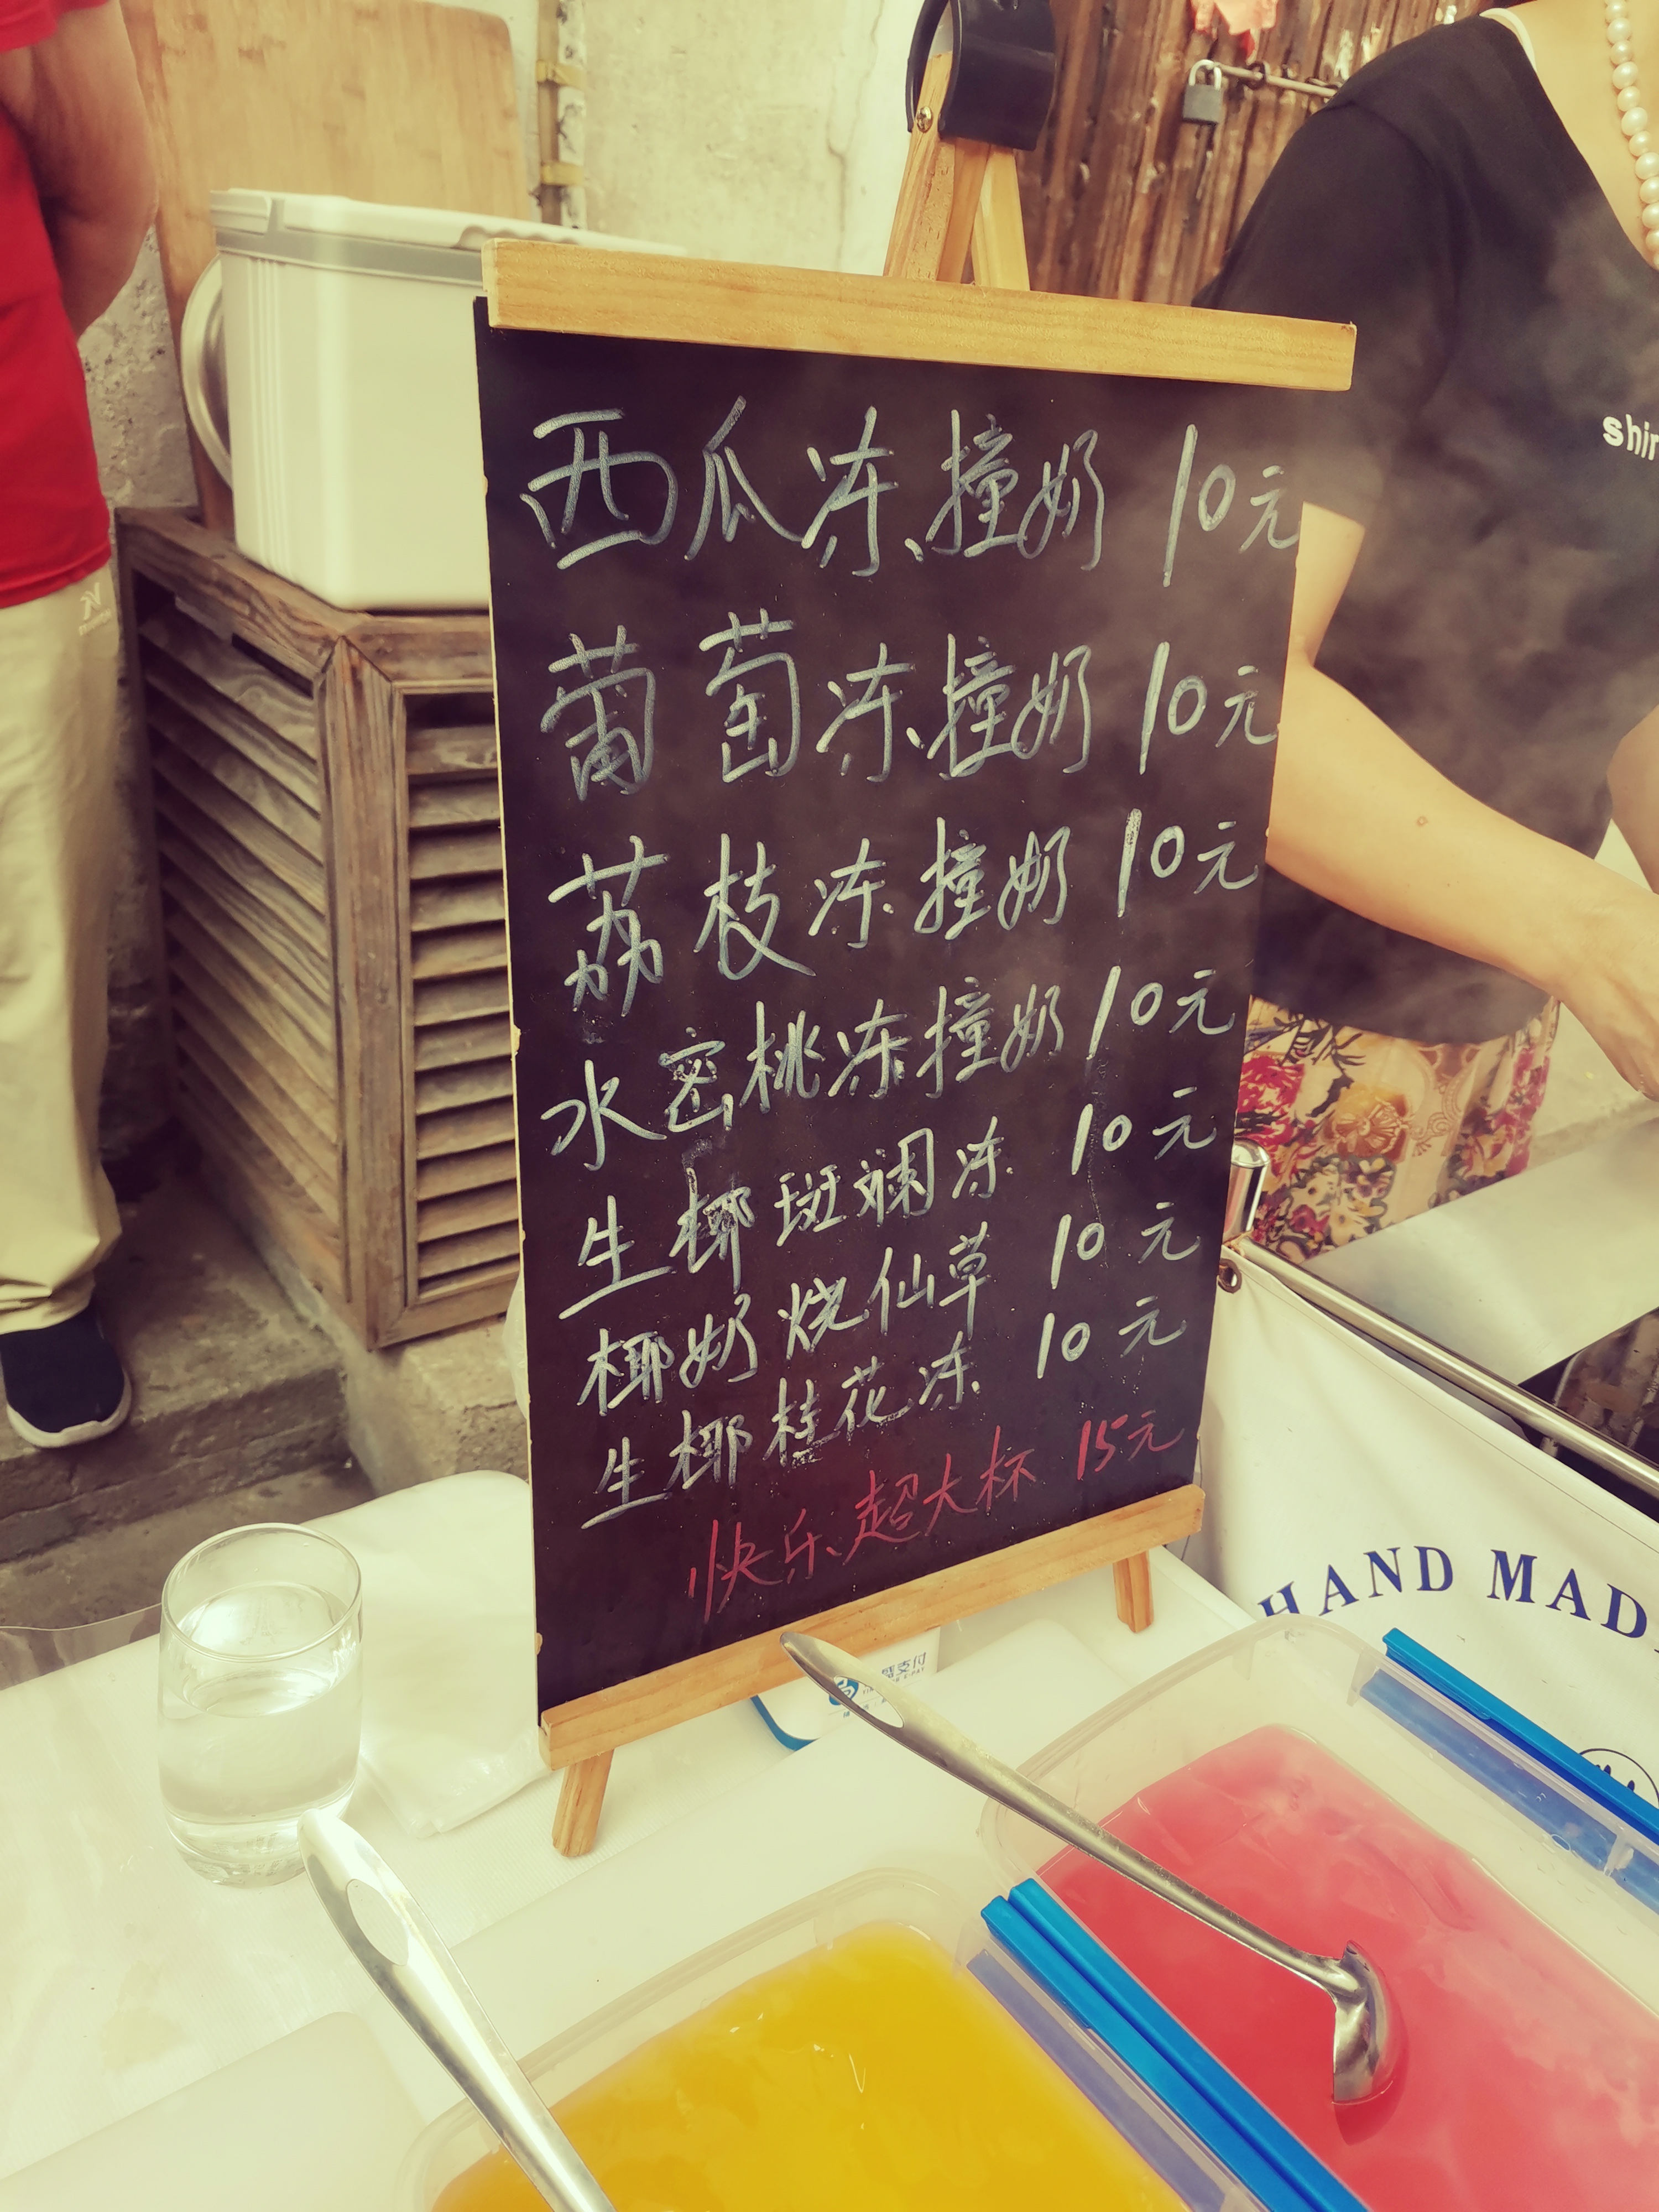 西瓜冻撞奶 10元
葡萄冻撞奶 10元
荔枝冻撞奶 10元
水密桃冻撞奶 10元
生椰斑斓冻 10元
椰奶烧仙草 10元
生椰桂花冻 10元
快乐超大杯 15元
shir
HAND MAD
支付